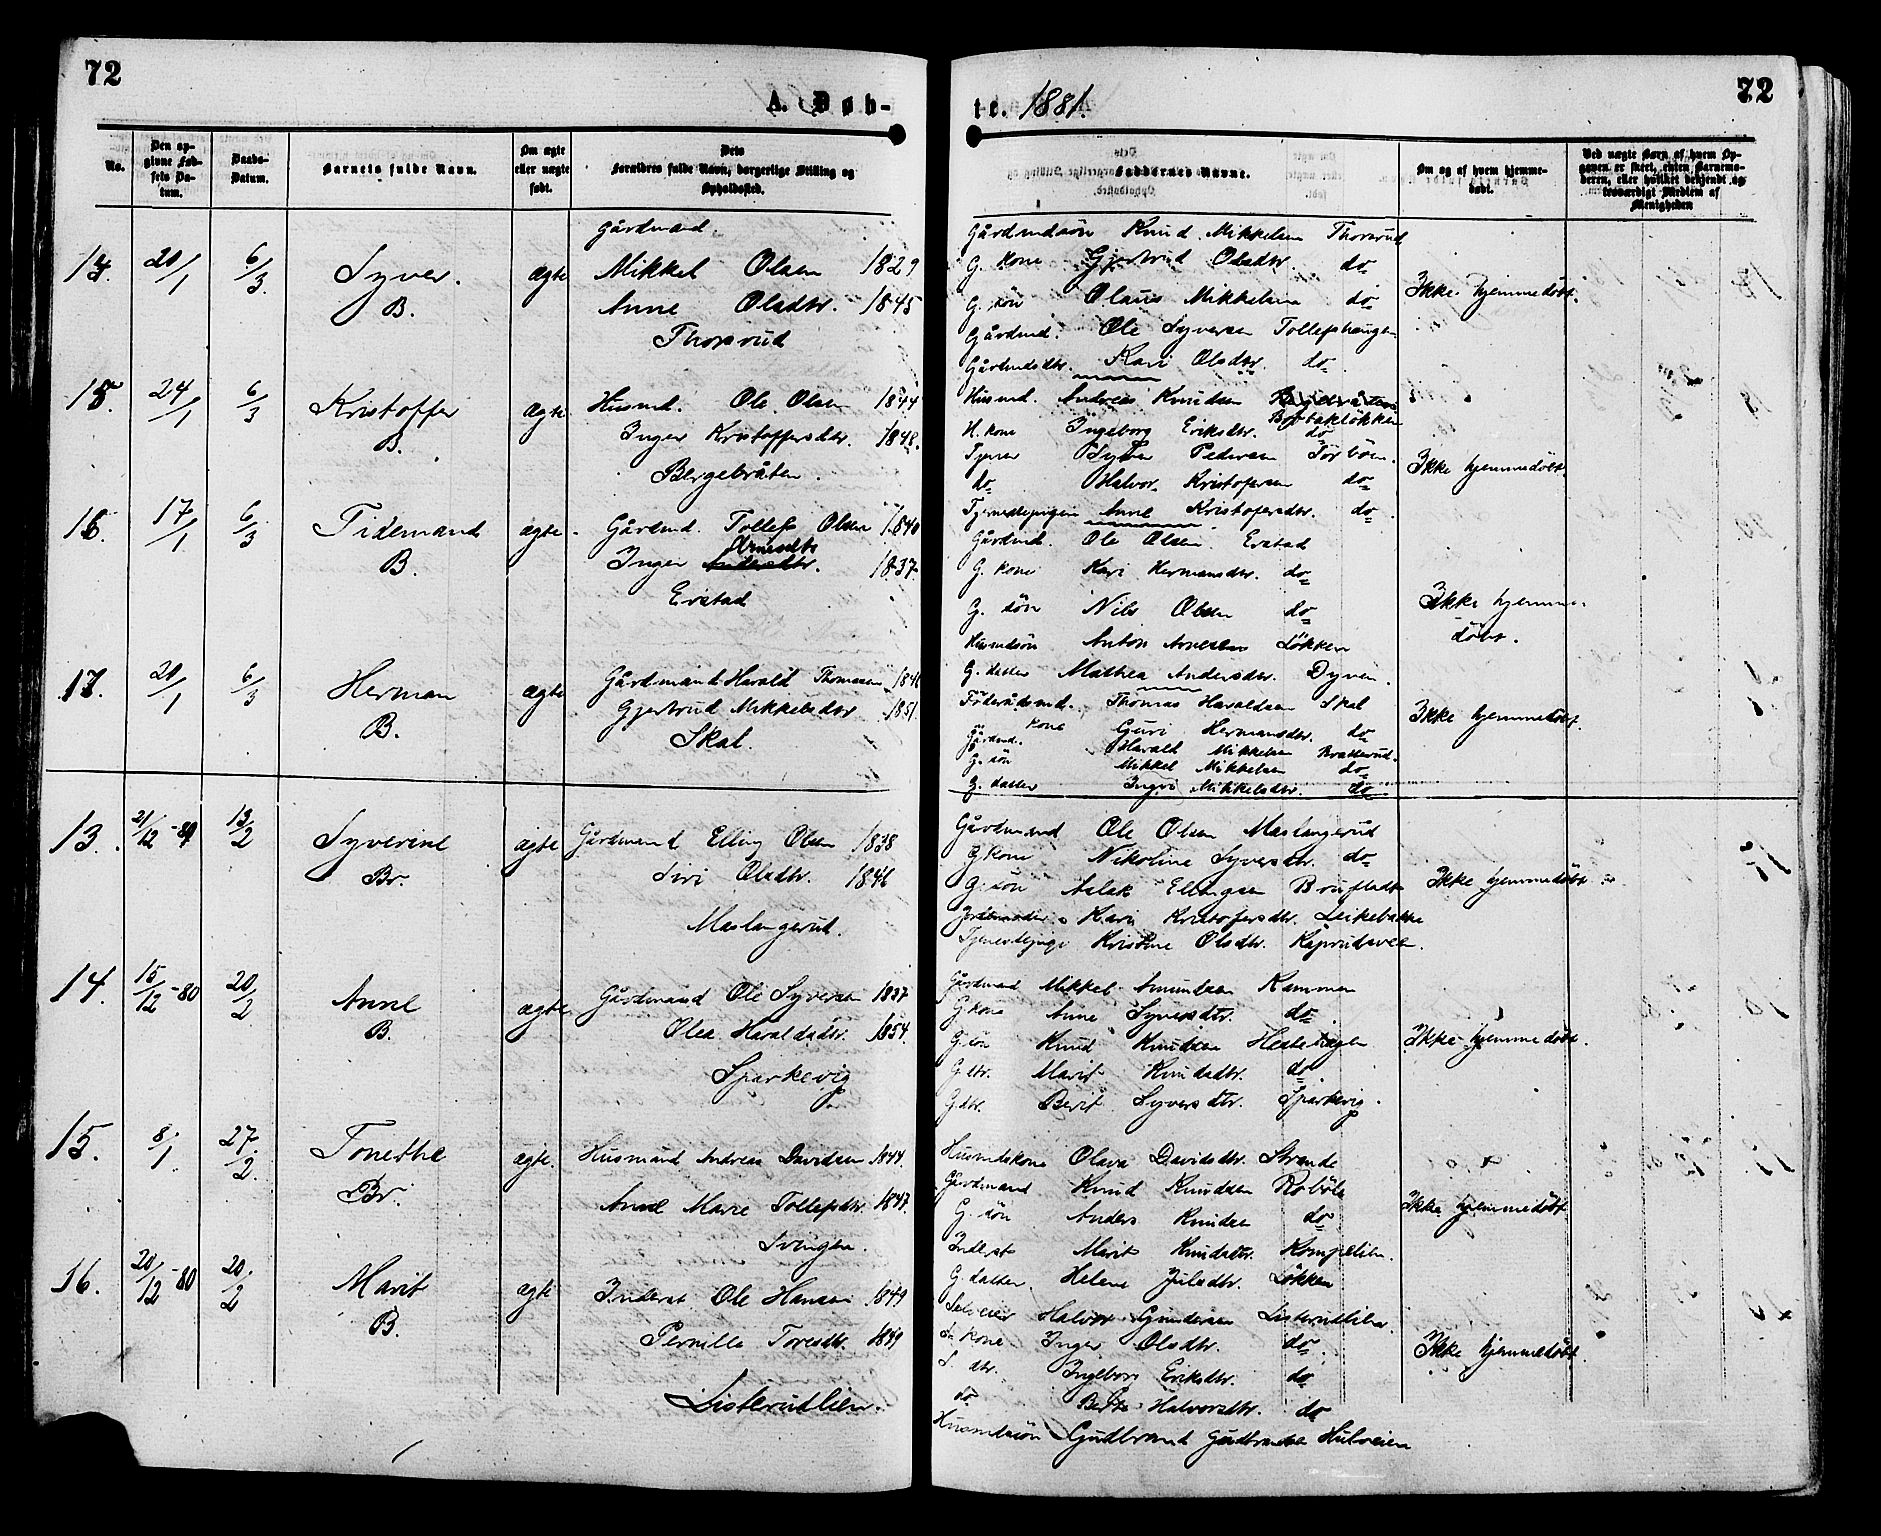 72
72
A. Døb-
te. 1881.
No.
Den opgivne Fødsels Datum.
Daabs-Datum.
Barnets fulde Navn.
Om ægte eller uægte født.
Dets Forældres fulde Navn, borgerlige Stilling og Opholdssted.
Faddernes Navne.
Om og af hvem hjemmedøbt.
Ved uægte Børn af hvem Opgaven er skeet, enten Barnemoderen, eller hvilket bekjendt og troværdigt Medlem af Menigheden
14. 20/1 6/3 Syver. B. ægte
Gårdmand.
Mikkel Olsen 1829
Anne Olsdtr. 1845
Thorsrud
Gårdmdsön Knud Mikkelsen Thorsrud
G. kone Gjertrud Olsdtr. do
G. sön Olaus Mikkelsen do
Gårdmd. Ole Syversen Tollefshaugen
Gårdmdsdtr. Kari Olsdtr. do
Ikke hjemmedöbt.
15. 24/1 6/3 Kristoffer B. ægte
Husmd. Ole Olsen 1844
Inger Kristoffersdtr. 1848.
Bergebråten.
Husmd. Andreas Knudsen
H. kone Ingeborg Eriksdtr. do
Tjener Syver Pedersen
do Halvor Kristofersen do
Tjenestepigen Anne Kristofersdtr. do
Ikke hjemmedöbt
16. 17/1 6/3 Tidemand B. ægte.
Gårdmd. Tollef Olsen 1840
Arnesdtr
Inger Andersdtr. 1837.
Evstad
Gårdmd. Ole Olsen Evstad
G. kone Kari Hermansdtr. do
G. sön Nils Olsen do
Husmdsön Anton Arnesen Lökken
G. datter Mathea Andersdtr. Dyven.
Ikke hjemme-
döbt.
17. 20/1 6/3 Herman B. ægte
Gårdmand Harald Thomasen 1846
Gjertrud Mikkelsdtr 1851.
Skal.
Föderådsmd. Thomas Haraldsen Skal
kone Guri Hermansdtr. do
Gårdmd. Harald Mikkelsen Bratterud.
G. sön Mikkel Mikkelsen do
G. datter Ingri Mikkelsdtr. do
Ikke hjemmedöbt
13. 21/12-80 13/2 Syverine Br. ægte
Gårdmand Elling Olsen 1838
Siri Olsdtr. 1846
Maslangerud.
Gårdmand Ole Olsen Maslangerud
G kone Nikoline Syversdtr. do
G. sön Aslak Ellingsen Brufladt
Kari Kristofersdtr. Leikebakke
Tjenestepige Kristine Olsdtr.
Ikke hjemmedöbt
14. 15/12-80 20/2 Anne B. ægte.
Gårdmand Ole Syversen 1837
Olea Haraldsdtr. 1854.
Sparkevig
Gårdmand Mikkel Amundsen Rammen
G kone Anne Syversdtr. do
G. sön Knud Knudsen Hestehagen
G. dtr. Marit Knudsdtr. do
G. dtr. Berit Syversdtr. Sparkevig.
Ikke hjemmedöbt.
15. 8/1 27/2 Tonethe Br. ægte.
Husmand Andreas Davidsen 1844.
Anne Marie Tollefsdtr. 1847.
Svingen.
Husmdskone Olava Davidsdtr. Strande
Gårdmand Knud Knudsen Roböle
G. sön Anders Knudsen do
Inderst Marit Knudsdtr.
G. datter Helene Juladtr. Lökken
Ikke hjemmedöbt
16. 20/12-80 20/2 Marit B. ægte
Inderst Ole Hansen 1849
Pernille Toresdtr. 1849
Listerudlien.
Selveier Halvor Gundersen Listerudlien
S. kone Inger Olsdtr. do.
S. dtr. Ingeborg Eriksdtr. do
do Berthe Halvorsdtr. do
Husmdsön Gudbrand Gudbrandsen Hulveien
Ikke hjemmedöbt.